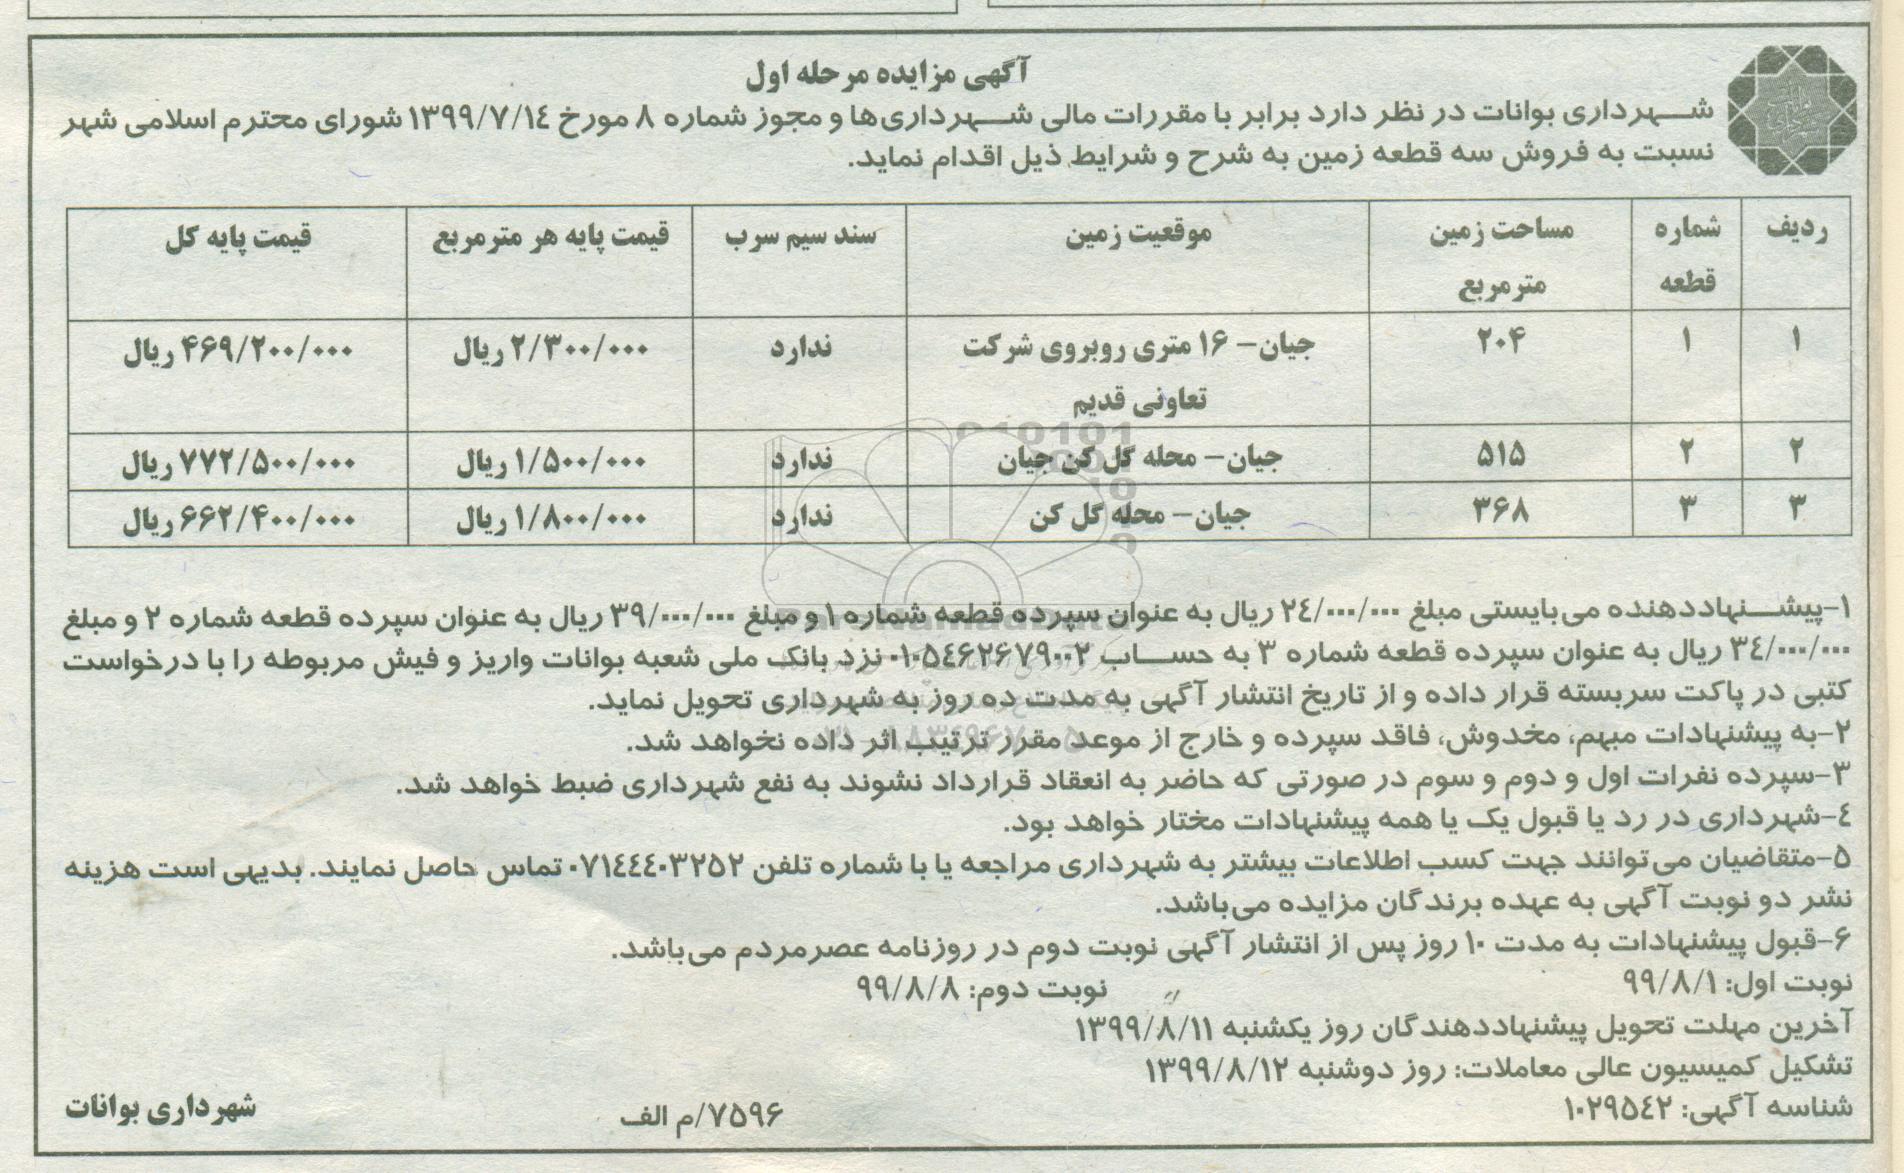 آگهی مزایده مرحله اول
شهرداری بوانات در نظر دارد برابر با مقررات مالی شهرداری‌ها و مجوز شماره ۸ مورخ ۱۳۹۹/۷/۱٤ شورای محترم اسلامی شهر
نسبت به فروش سه قطعه زمین به شرح و شرایط ذیل اقدام نماید.
ردیف شماره قطعه مساحت زمین مترمربع موقعیت زمین سند سیم سرب قیمت پایه هر مترمربع قیمت پایه کل
۱ ۱ ۲۰۴ جیان- ۱۶ متری روبروی شرکت تعاونی قدیم ندارد ۲/۳۰۰/۰۰۰ ریال ۴۶۹/۲۰۰/۰۰۰ ریال
۲ ۲ ۵۱۵ جیان- محله گل کن جیان ندارد ۱/۵۰۰/۰۰۰ ریال ۷۷۲/۵۰۰/۰۰۰ ریال
۳ ۳ ۳۶۸ جیان- محله گل کن ندارد ۱/۸۰۰/۰۰۰ ریال ۶۶۲/۴۰۰/۰۰۰ ریال
۱-پیشنهاددهنده می‌بایستی مبلغ ۲٤/۰۰۰/۰۰۰ ریال به عنوان سپرده قطعه شماره ۱ و مبلغ ۳۹/۰۰۰/۰۰۰ ریال به عنوان سپرده قطعه شماره ۲ و مبلغ
۳٤/۰۰۰/۰۰۰ ریال به عنوان سپرده قطعه شماره ۳ به حساب ۰۱۰۵٤۶۲۶۷۹۰۰۲ نزد بانک ملی شعبه بوانات واریز و فیش مربوطه را با درخواست
کتبی در پاکت سربسته قرار داده و از تاریخ انتشار آگهی به مدت ده روز به شهرداری تحویل نماید.
۲-به پیشنهادات مبهم، مخدوش، فاقد سپرده و خارج از موعد مقرر ترتیب اثر داده نخواهد شد.
۳-سپرده نفرات اول و دوم و سوم در صورتی که حاضر به انعقاد قرارداد نشوند به نفع شهرداری ضبط خواهد شد.
٤-شهرداری در رد یا قبول یک یا همه پیشنهادات مختار خواهد بود.
۵-متقاضیان می‌توانند جهت کسب اطلاعات بیشتر به شهرداری مراجعه یا با شماره تلفن ۰۷۱٤٤٤۰۳۲۵۲ تماس حاصل نمایند. بدیهی است هزینه
نشر دو نوبت آگهی به عهده برندگان مزایده می‌باشد.
۶-قبول پیشنهادات به مدت ۱۰ روز پس از انتشار آگهی نوبت دوم در روزنامه عصرمردم می‌باشد.
نوبت اول: ۹۹/۸/۱ نوبت دوم: ۹۹/۸/۸
آخرین مهلت تحویل پیشنهاددهندگان روز یکشنبه ۱۳۹۹/۸/۱۱
تشکیل کمیسیون عالی معاملات: روز دوشنبه ۱۳۹۹/۸/۱۲
شناسه آگهی: ۱۰۲۹۵٤۲ ۷۵۹۶/م الف شهرداری بوانات